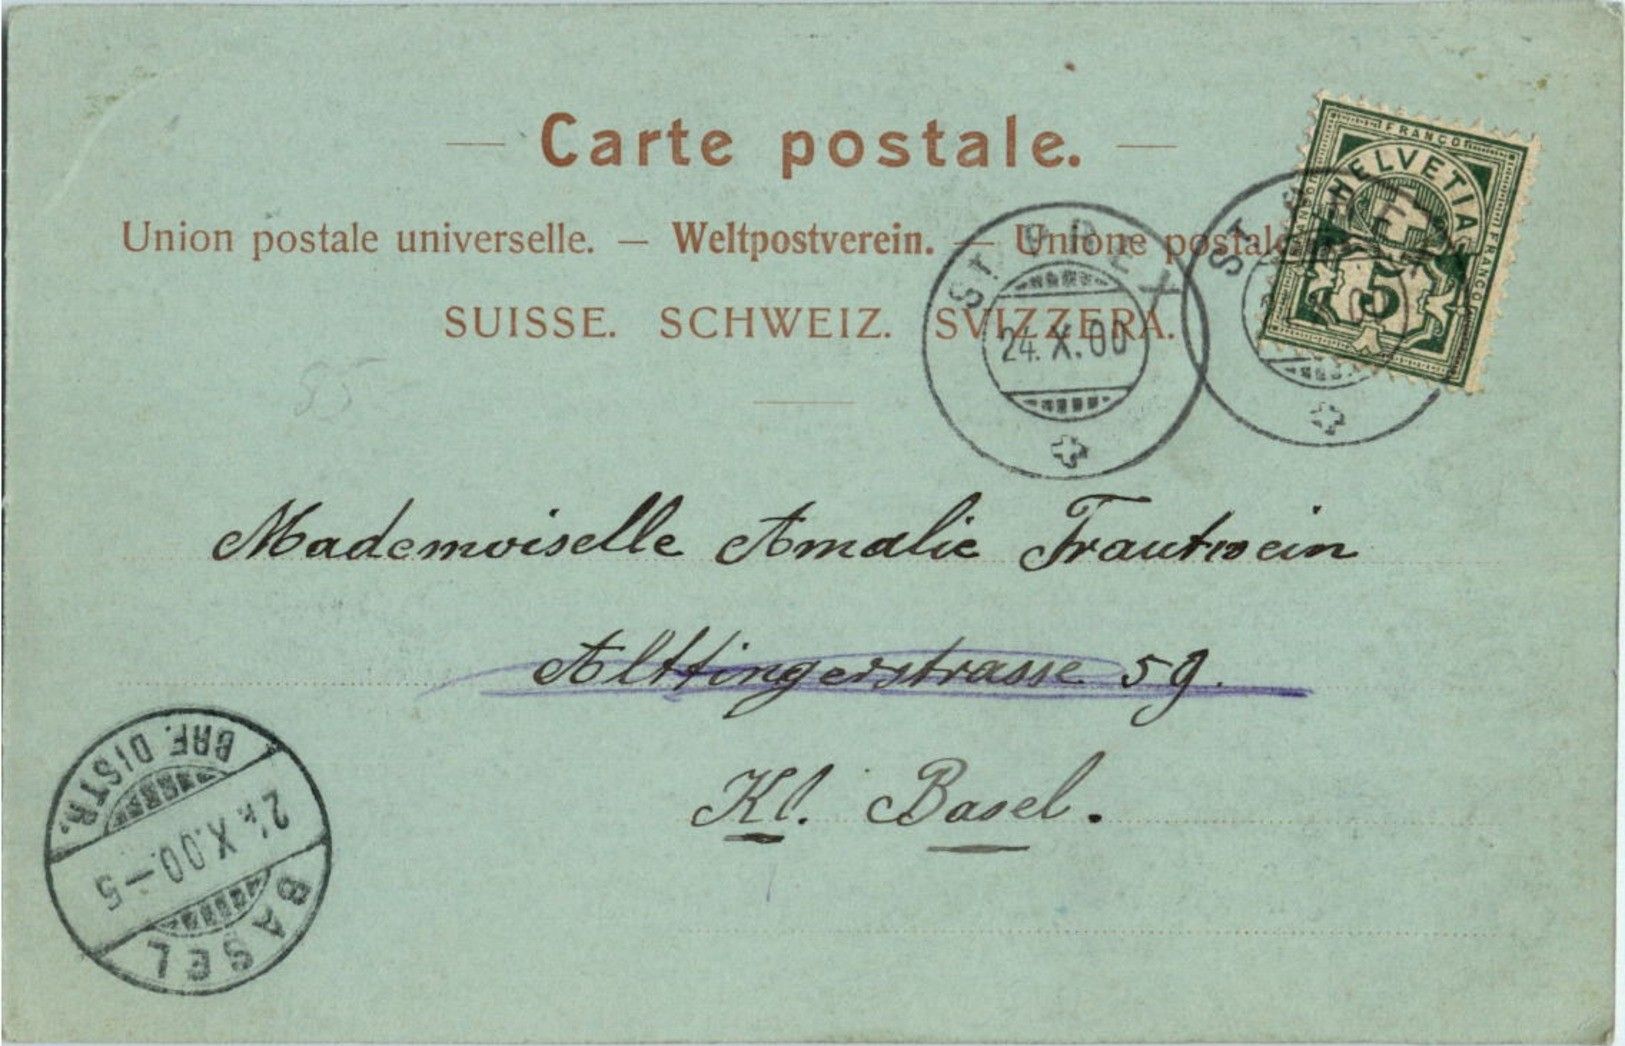 Carte postale.
Union postale universelle. — Weltpostverein. — Unione postale
SUISSE. SCHWEIZ. SVIZZERA.
FRANCO
FRANCO
FRANCO
HELVETIA
5
ST. PREX
24. X. 00
ST.
95
Mademoiselle Amalie Trautwein
Alttingerstrasse 59.
Kl. Basel.
BRF. DISTR.
24. X. 00. – 5
BASEL